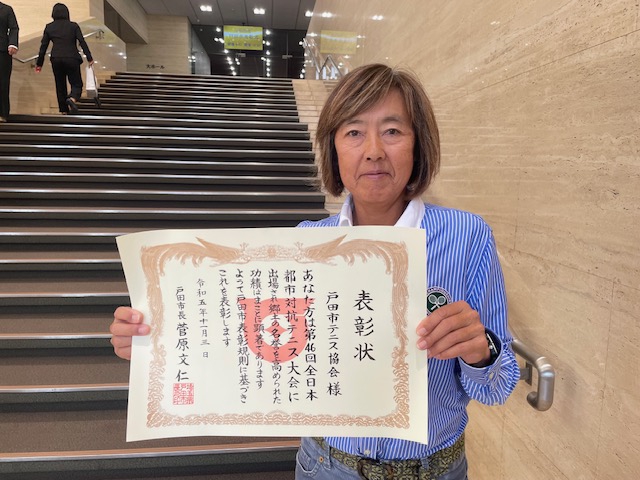 表彰状
戸田市テニス協会 様
あなた方は第46回全日本
都市対抗テニス大会に
出場され郷土の名誉を高められた
功績はまことに顕著であります
よって戸田市表彰規則に基づき
これを表彰します
令和五年十一月三日
戸田市長 菅原文仁